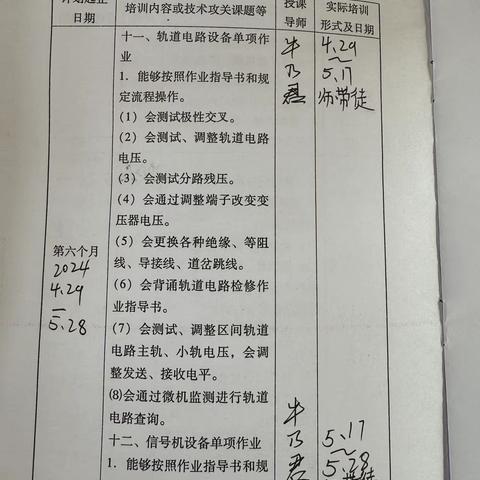 日期
培训内容或技术攻关课题等
授课
导师
实际培训
形式及日期
第六个月
2024
4.29
–
5.28
十一、轨道电路设备单项作
业
1．能够按照作业指导书和规
定流程操作。
(1) 会测试极性交叉。
(2) 会测试、调整轨道电路
电压。
(3) 会测试分路残压。
(4) 会通过调整端子改变变
压器电压。
(5) 会更换各种绝缘、等阻
线、导接线、道岔跳线。
(6) 会背诵轨道电路检修作
业指导书。
(7) 会测试、调整区间轨道
电路主轨、小轨电压，会调
整发送、接收电平。
⑻会通过微机监测进行轨道
电路查询。
牛
乃
4.29
~
5.17
师带徒
十二、信号机设备单项作业
1．能够按照作业指导书和规
牛
乃
5.17
~
5.28